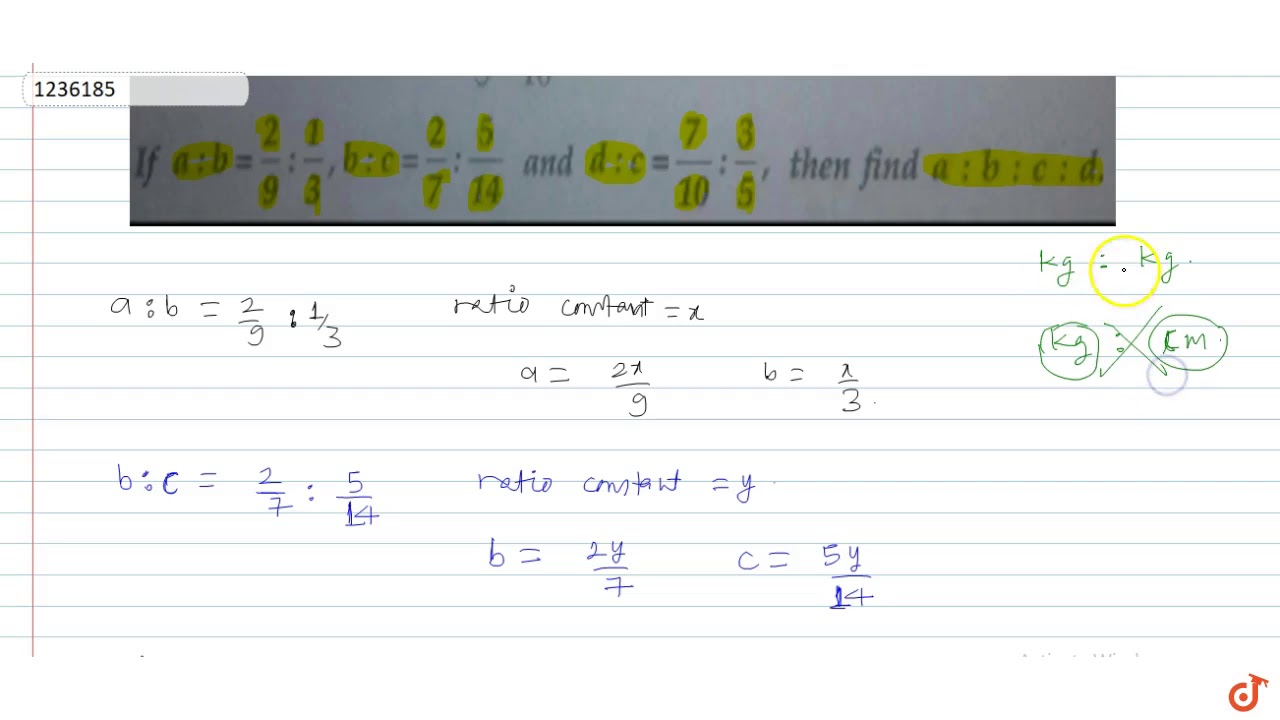 1236185
If a : b = 2/9 : 1/3, b : c = 2/7 : 5/14 and d : c = 7/10 : 3/5, then find a : b : c : d.
kg : kg.
a : b = 2/9 : 1/3 ratio constant = x
kg : cm.
a = 2x/9 b = x/3.
b : c = 2/7 : 5/14 ratio constant = y.
b = 2y/7 c = 5y/14